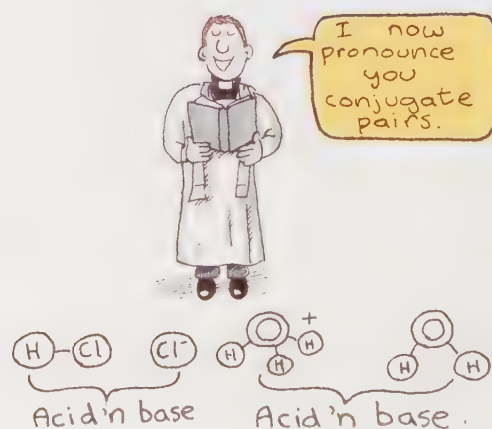 I now
pronounce
you
conjugate
pairs.
H Cl Cl⁻ H H H + H H
Acid'n base Acid'n base.